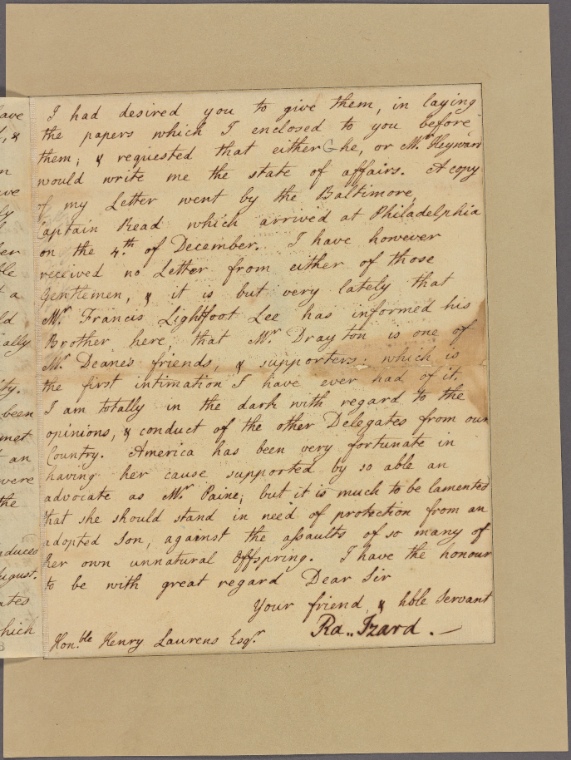 I had desired you to give them, in laying
the papers which I enclosed to you before
them; & requested that either he, or Mr. Heyward
would write me the state of affairs. A copy
of my Letter went by the Baltimore,
Captain Read which arrived at Philadelphia
on the 4th. of December. I have however
received no Letter from either of those
Gentlemen, & it is but very lately that
Mr. Francis Lightfoot Lee has informed his
Brother here, that Mr. Drayton is one of
Mr. Deanes friends, & supporters: which is
the first intimation I have ever had of it.
I am totally in the dark with regard to the
opinions, & conduct of the other Delegates from our
Country. America has been very fortunate in
having her cause supported by so able an
advocate as Mr. Paine; but it is much to be lamented
that she should stand in need of protection from an
adopted Son, against the assaults of so many of
her own unnatural Offspring. I have the honour
to be with great regard Dear Sir
Your friend & hble Servant
Ra.. Izard.
Hon.ble Henry Laurens Esqr.